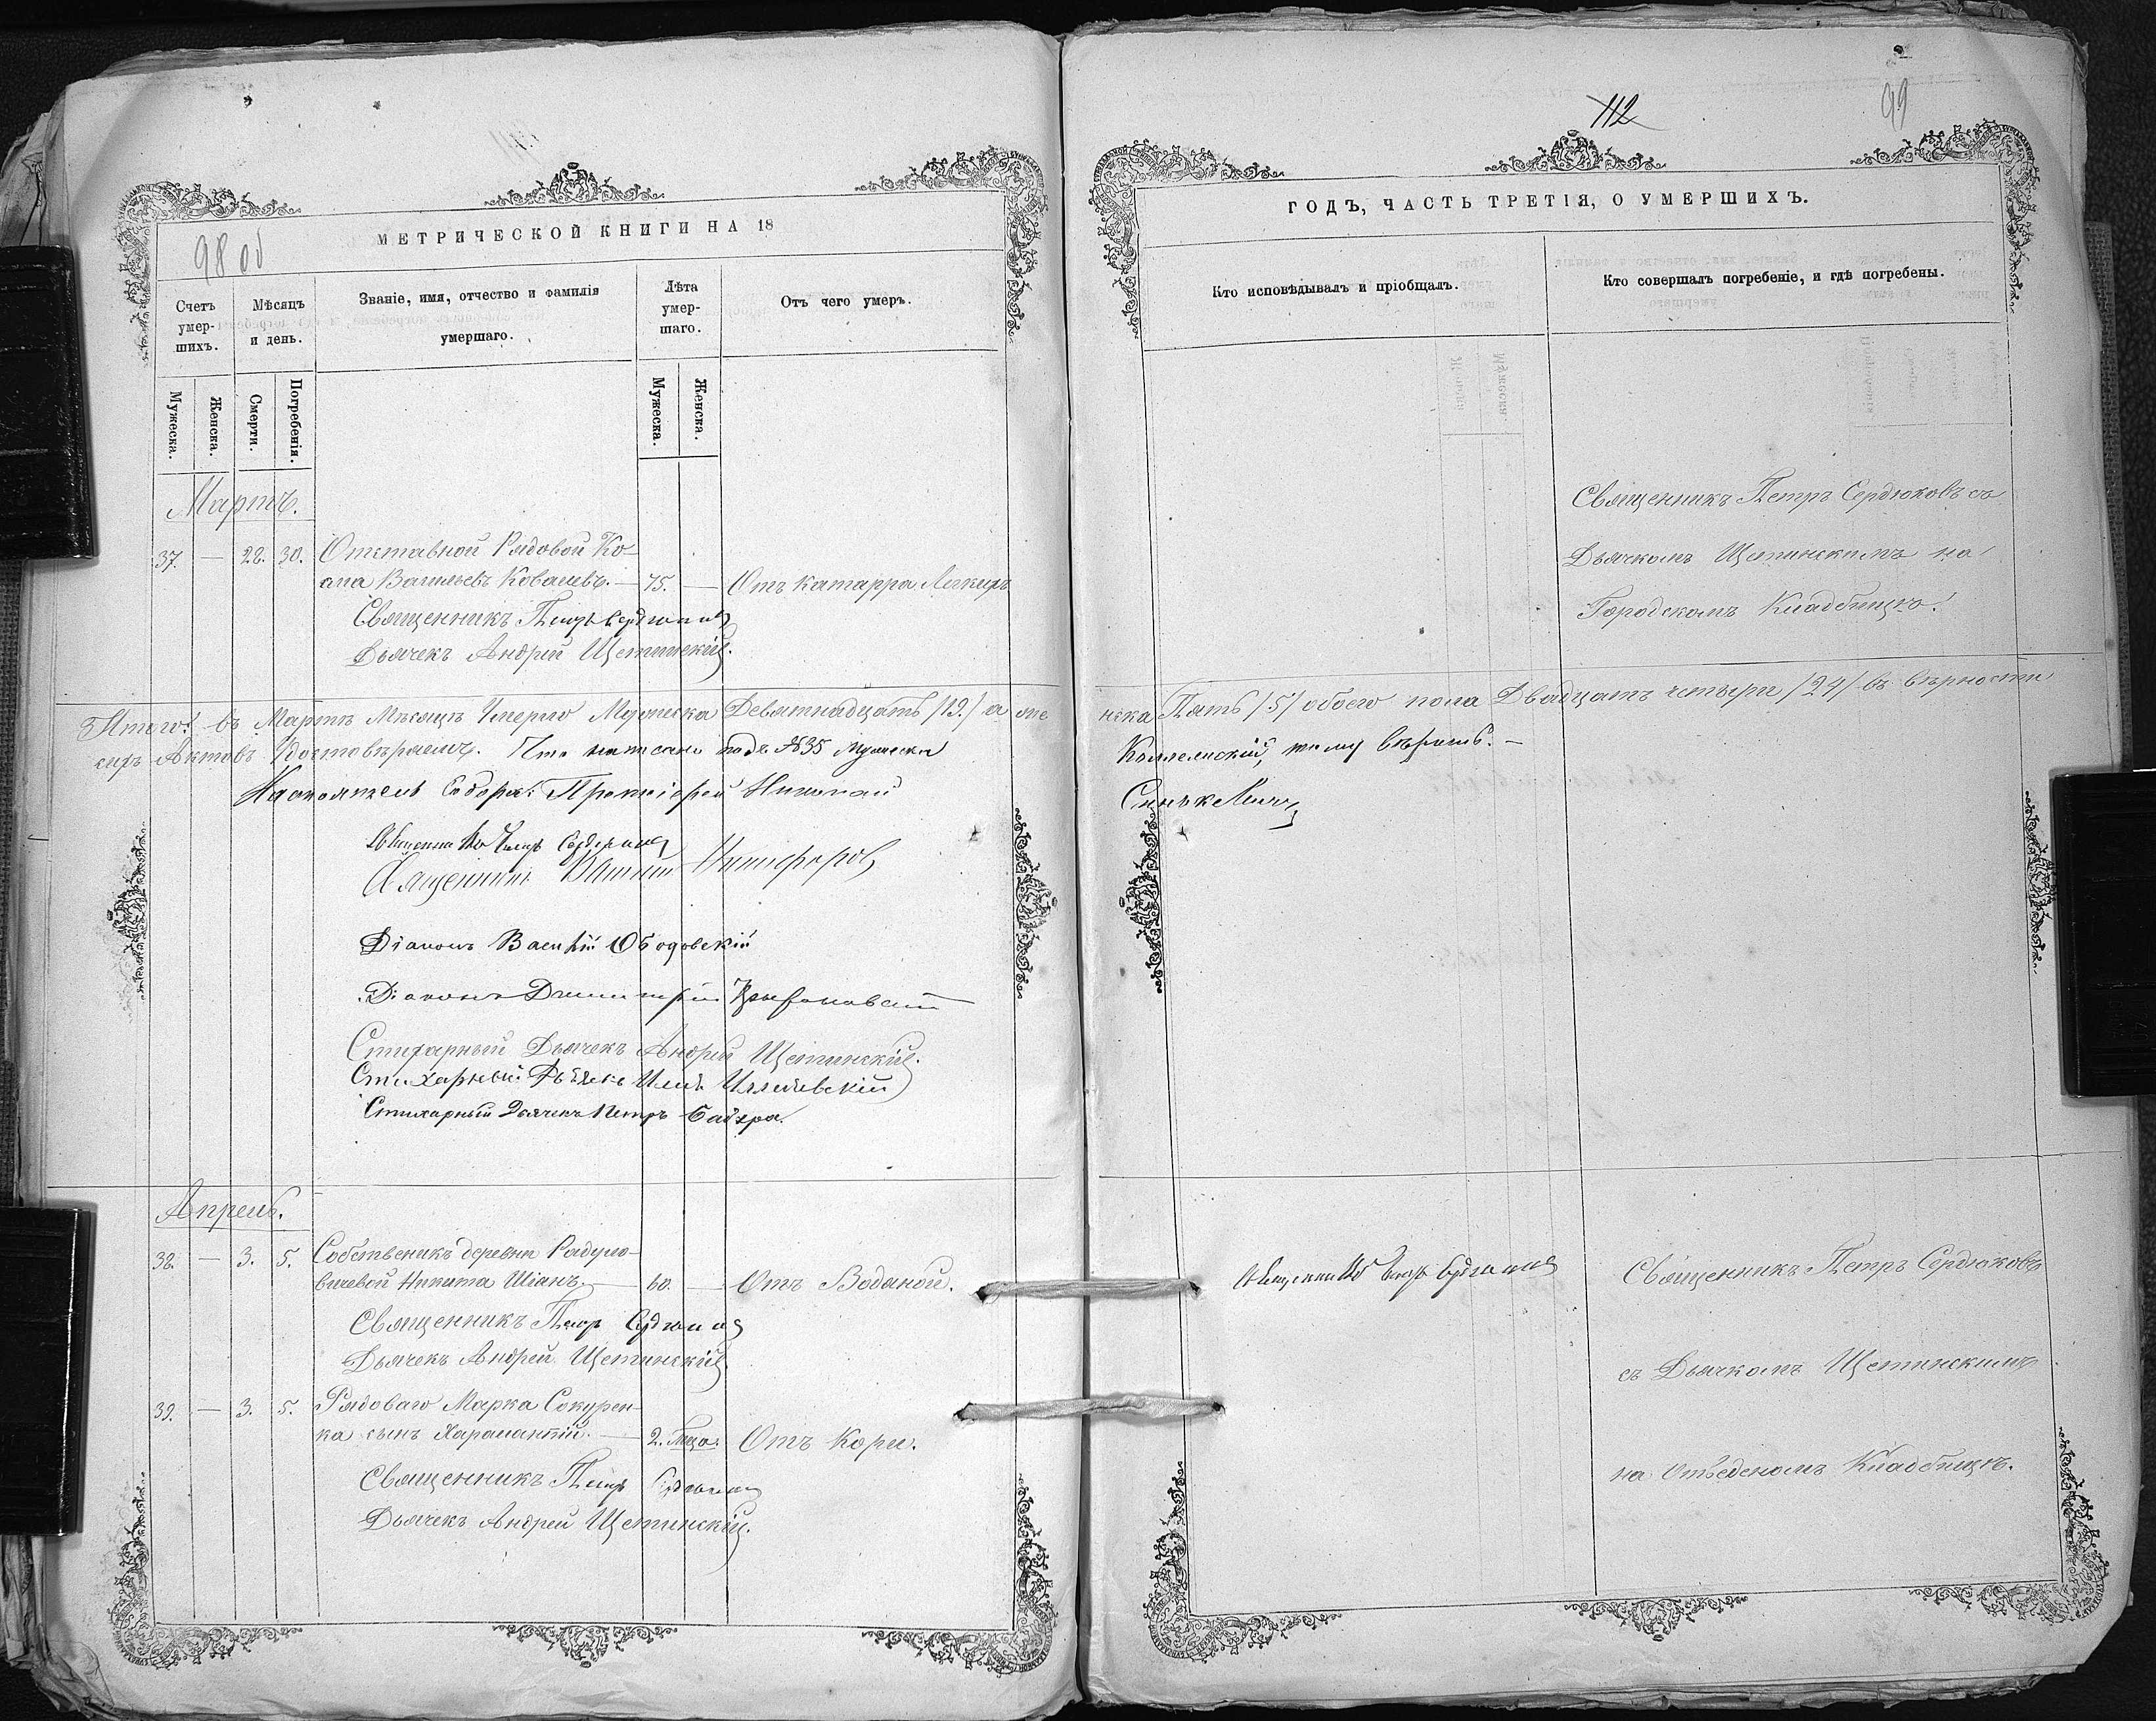 98 об
МЕТРИЧЕСКОЙ КНИГИ НА 18
Счетъ умер-шихъ.
Мѣсяцъ и день.
Званіе, имя, отчество и фамилія умершаго.
Лѣта умер-шаго.
Отъ чего умеръ.
Мужеска.
Женска.
Смерти.
Погребенія.
Мужеска.
Женска.
Мартъ.
37. — 28. 30. Отставной Рядовой Ко-
Васильевъ Ковалевъ. — 75. — Отъ катарра Легкихъ
Священникъ Петръ Сердюковъ
Дьячекъ Андрей Щетинскій.
Итого: въ Мартѣ Мѣсяцѣ Умерло Мужеска Девятнадцать /19./ а же
сихъ Актовъ Удостовѣряемъ. Что написано подъ №35 Мужеска
Настоятель Собора: Протоіерей Николай
Священникъ Петръ Сердюковъ
Священникъ Никифоровъ
Діаконъ Василій Ободовскій
Діаконъ Димитрій
Стихарный Дьячекъ Андрей Щетинскій.
Стихарный Дьячекъ
Стихарный Дьячекъ Петръ
Апрель.
38. — 3. 5. Собственикъ деревни Радуло-
вичевой Никита Шіанъ. — 60. — Отъ Водяной.
Священникъ Петръ Сердюковъ
Дьячекъ Андрей Щетинскій
39. — 3. 5. Рядоваго Марка Сокурен-
ка сынъ Харлампій. — 2. года. Отъ Кори.
Священникъ Петръ Сердюковъ
Дьячекъ Андрей Щетинскій.
112
99
ГОДЪ, ЧАСТЬ ТРЕТІЯ, О УМЕРШИХЪ.
Кто исповѣдывалъ и пріобщалъ.
Кто совершалъ погребеніе, и гдѣ погребены.
Священникъ Петръ Сердюковъ съ
Дьячкомъ Щетинскимъ на
Городскомъ Кладбищѣ.
нска Пять /5/ обоего пола Двадцать четыри /24/ въ вѣрности
тому вѣрить. —
Синькевичъ
Священникъ Петръ Сердюковъ
Священникъ Петръ Сердюковъ
съ Дьячкомъ Щетинскимъ
на Отведеномъ Кладбищѣ.